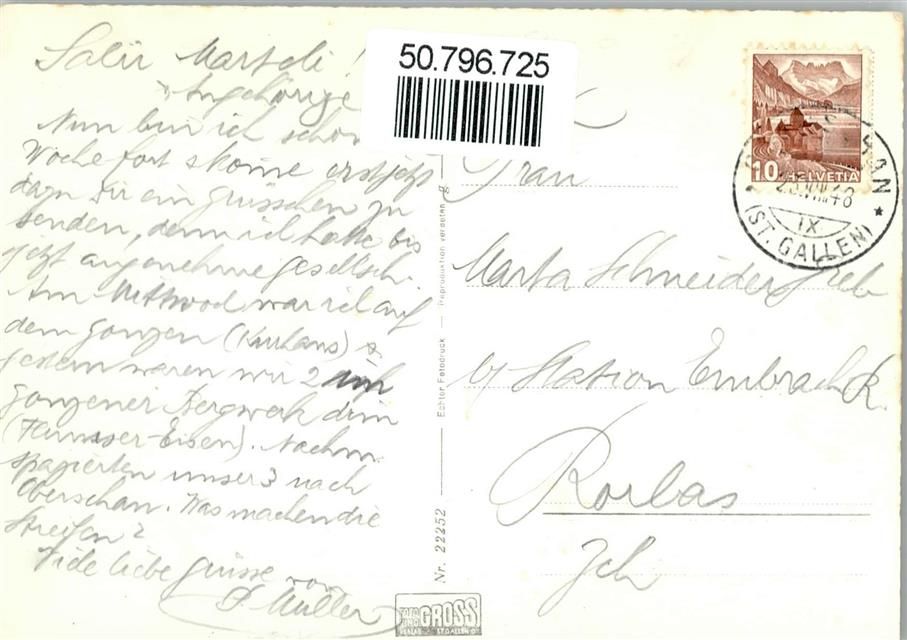 Salü Marteli!
& Angehörige
Nun bin ich schon
Woche fort & komme erst jetzt
dazu Dir ein Grüsschen zu
senden, denn ich hatte bis
jetzt angenehme Gesellsch.
Am Mittwoch war ich auf
dem Gonzen (Kurhaus) &
gestern waren wir 2 im
Gonzener Bergwerk drin
(Flumser-Eisen). Nachm.
spazierten unser 3 nach
Oberschan. Was machen die
Streifen?
Viele liebe Grüsse von
S. Müller
50.796.725
Nr. 22252 — Echter Fotodruck — Reproduktion verboten
FOTO
UND
VERLAG
GROSS
ST. GALLEN
10 HELVETIA
VIII 48
IX
(ST. GALLEN)
Frau
Marta Schneider
b/ Station Embrach R.
Rorbas
Zch